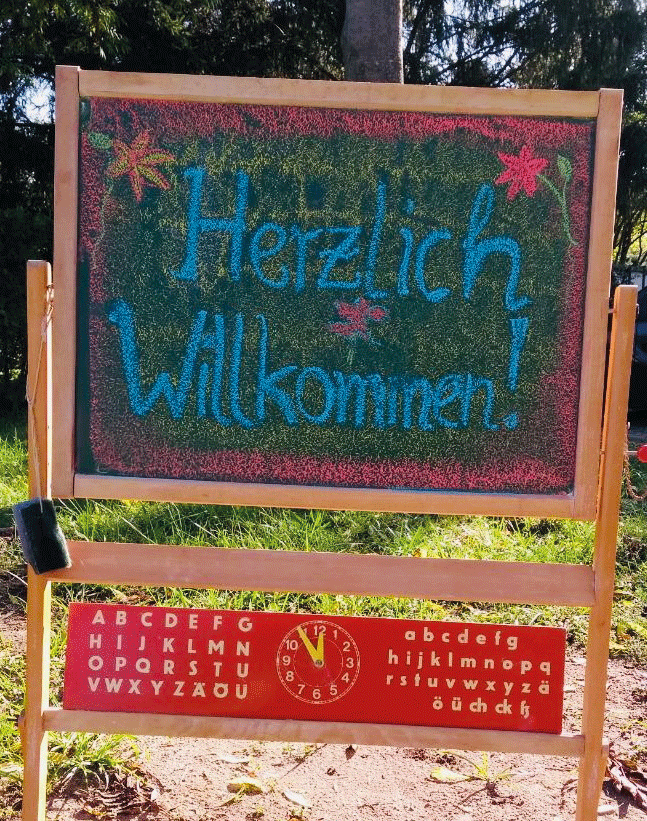 Herzlich
Willkommen!
A B C D E F G
H I J K L M N
O P Q R S T U
V W X Y Z Ä Ö Ü
12 1 2 3 4 5 6 7 8 9 10
a b c d e f g
h i j k l m n o p q
r s t u v w x y z ä
ö ü ch ck